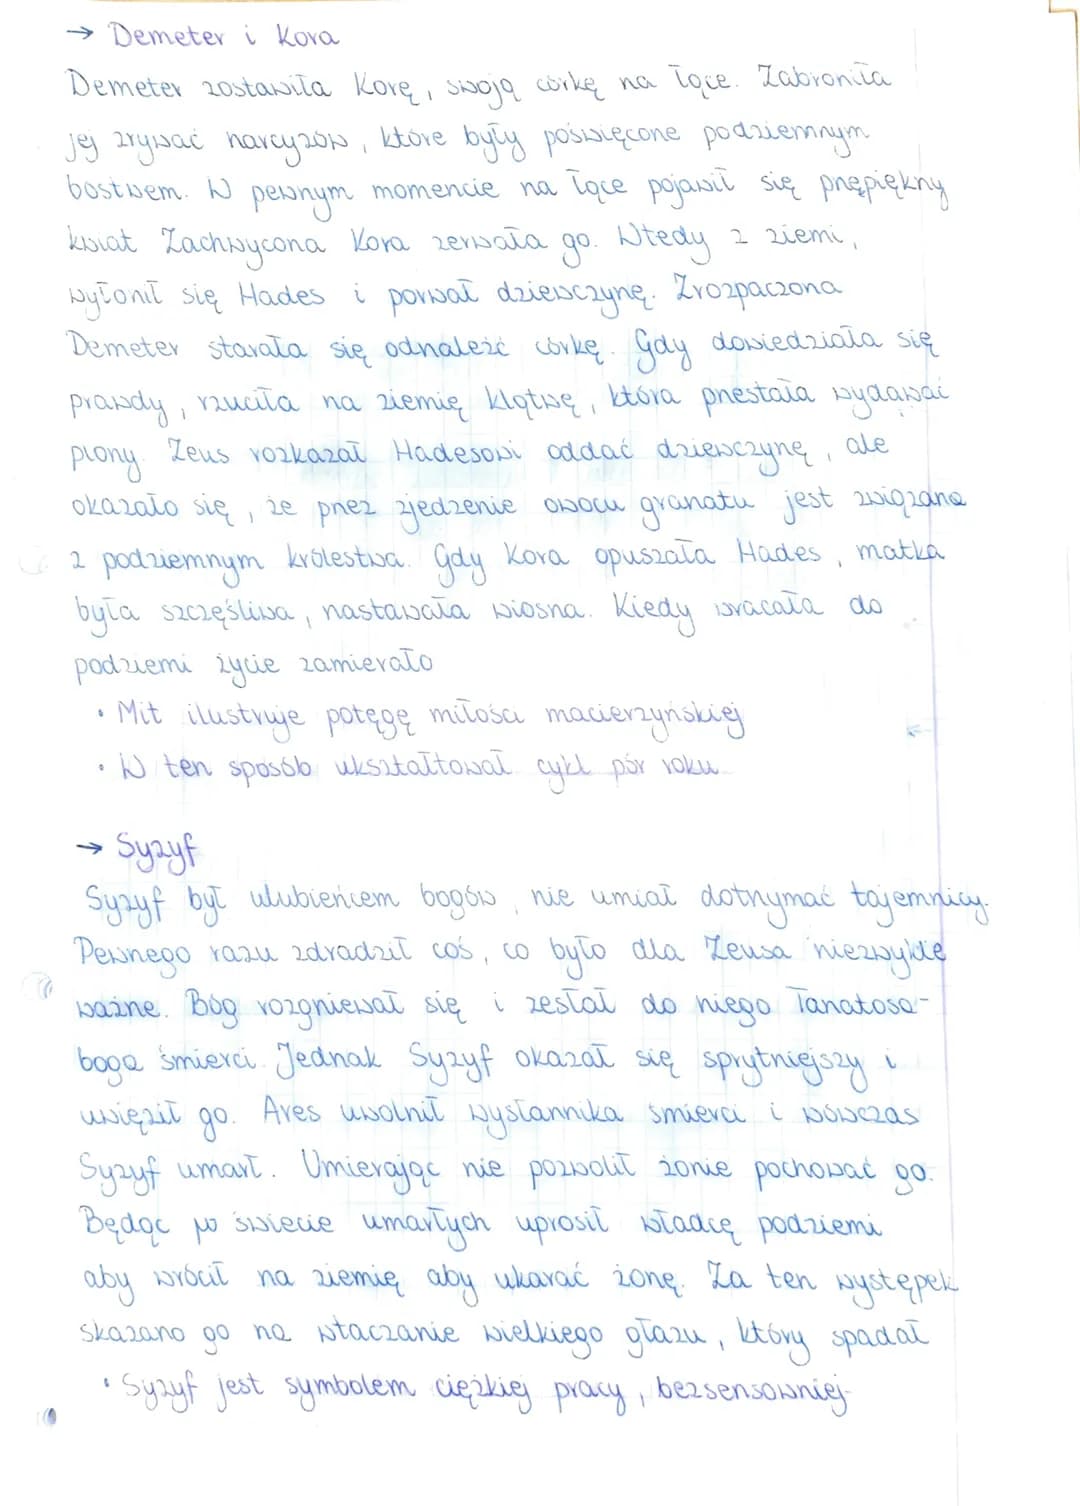 → Demeter i Kora
Demeter zostawiła Korę, swoją córkę na łące. Zabroniła
jej zrywać narcyzów, które były poświęcone podziemnym
bóstwem. W pewnym momencie na łące pojawił się przepiękny
kwiat Zachwycona Kora zerwała go. Wtedy z ziemi,
wyłonił się Hades i porwał dziewczynę. Zrozpaczona
Demeter starała się odnaleźć córkę. Gdy dowiedziała się
prawdy, rzuciła na ziemię klątwę, która przestała wydawać
plony. Zeus rozkazał Hadesowi oddać dziewczynę, ale
okazało się, że przez zjedzenie owocu granatu jest związana
z podziemnym królestwa. Gdy Kora opuszała Hades, matka
była szczęśliwa, nastawała wiosna. Kiedy wracała do
podziemi życie zamierało
• Mit ilustruje potęgę miłości macierzyńskiej
• W ten sposób ukształtował cykl pór roku
→ Syzyf
Syzyf był ulubieńcem bogów, nie umiał dotrzymać tajemnicy.
Pewnego razu zdradził coś, co było dla Zeusa niezwykle
ważne. Bóg rozgniewał się i zesłał do niego Tanatosa-
boga śmierci. Jednak Syzyf okazał się sprytniejszy i
uwięził go. Ares uwolnił wysłannika śmierci i wówczas
Syzyf umarł. Umierając nie pozwolił żonie pochować go.
Będąc w świecie umarłych uprosił władcę podziemi
aby wrócił na ziemię aby ukarać żonę. Za ten występek
skazano go na wtaczanie wielkiego głazu, który spadał
• Syzyf jest symbolem ciężkiej pracy, bezsensowniej